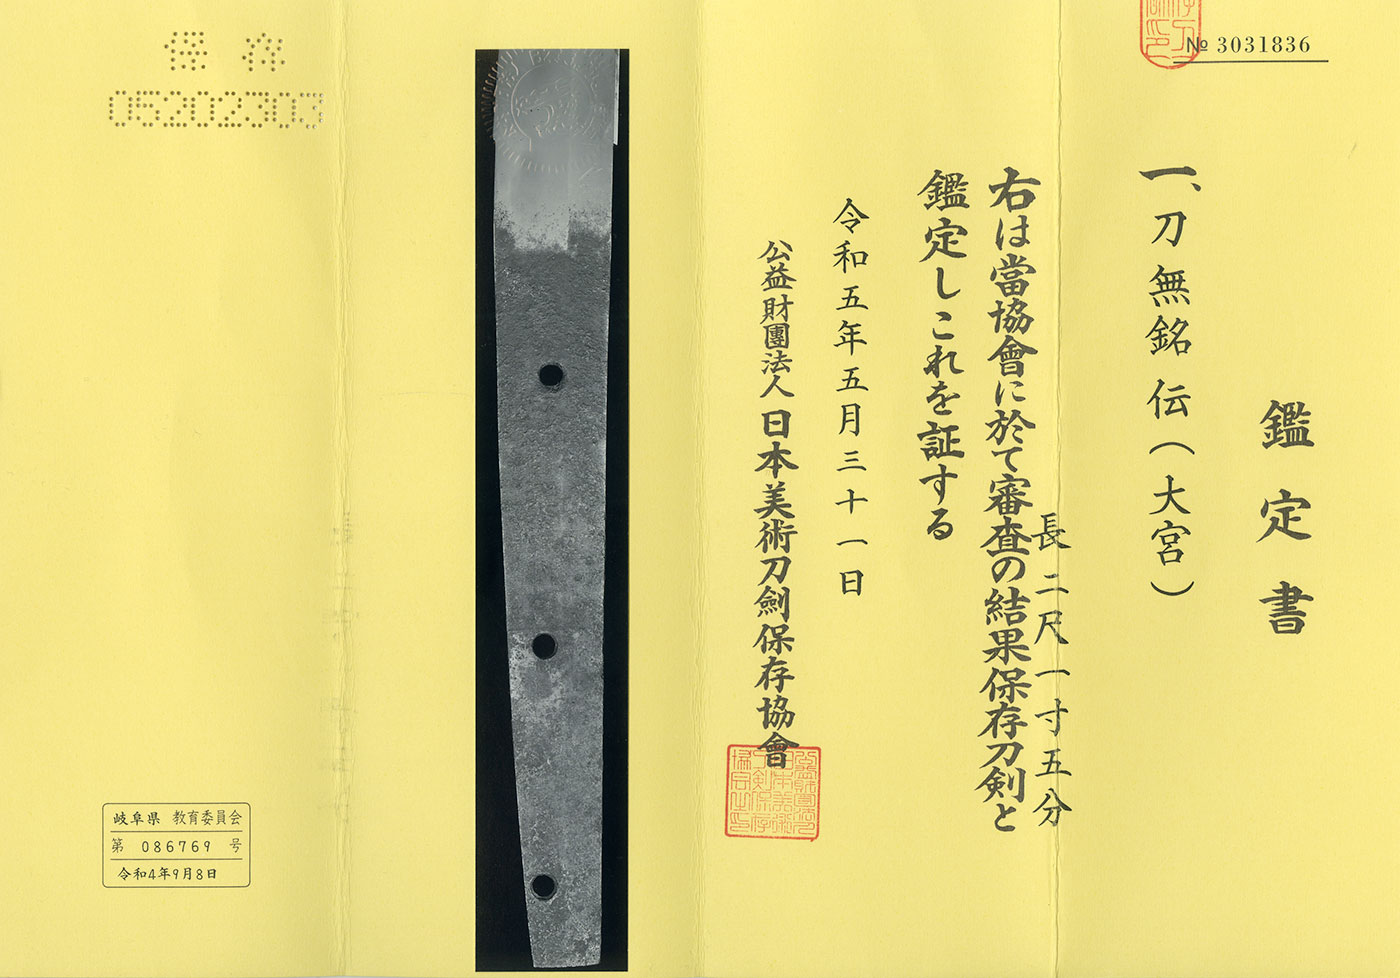 № 3031836
鑑定書
一、刀 無銘 伝(大宮)
長 二尺一寸五分
右は當協會に於て審査の結果保存刀剣と
鑑定しこれを証する
令和五年五月三十一日
公益財團法人 日本美術刀劍保存協會
保存
05202303
岐阜県 教育委員会
第 086769 号
令和4年9月8日